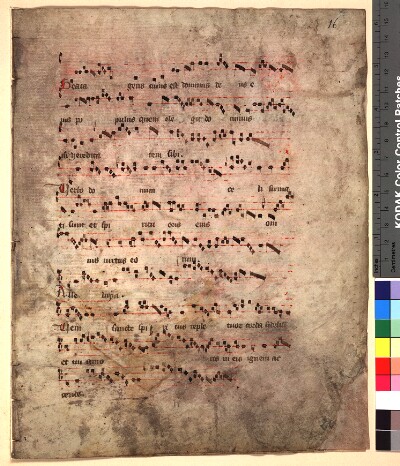 16
Beata gens cuius est dominus de us e
ius po pulus quem ele git do minus
in heredita tem sibi
Verbo do mini ce li firma
ti sunt et spi ritu oris eius om
nis virtus eo rum
Alle luya
Veni sancte spi ri tus reple tuorum corda fidelium
et tui amo ris in eis ignem ac
cende
KODAK Color Control Patches
Inches
Centimetres